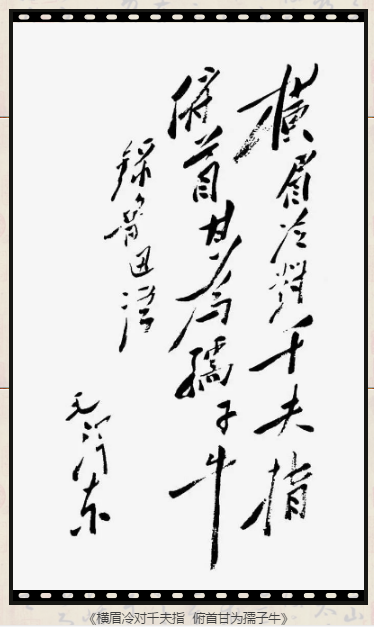 横眉冷對千夫指
俯首甘为孺子牛
錄魯迅语
毛泽东
《横眉冷对千夫指 俯首甘为孺子牛》